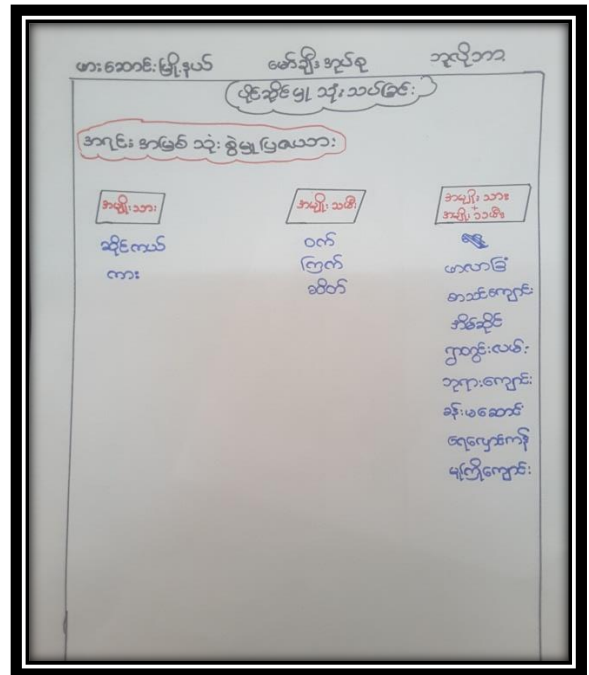 ဖားဆောင်းမြို့နယ် မော်ချီးအုပ်စု ဘူလိုဘာ
ပိုင်ဆိုင်မှု သုံးသပ်ခြင်း
အရင်း အမြစ် သုံး စွဲမှု ပြဇယား
အမျိုးသား အမျိုးသမီး အမျိုးသား + အမျိုးသမီး
ဆိုင်ကယ် ဝက်
ကား ကြက် ဖာလာခြံ
ဆိတ် စာသင်ကျောင်း
အိမ်ဆိုင်
ရွာတွင်းလမ်း
ဘုရားကျောင်း
ခန်းမဆောင်
ရေလှောင်ကန်
မူကြိုကျောင်း